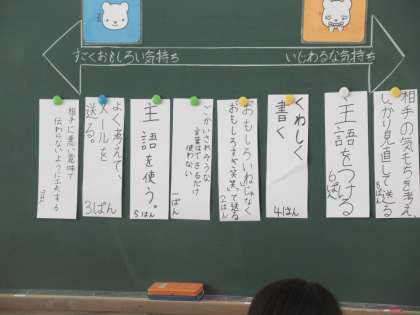 すごくおもしろい気持ち
いじわるな気持ち
相手の気もちを考え
しっかり見直して送る
主語をつける
6ぱん
くわしく
書く
4はん
おもしろいねじゃなく
おもしろすぎて笑笑って送る
2はん
ごかいされそうな
言葉はできるだけ
使わない
一ぱん
主語を使う。
5はん
よく考えて、
メールを
送る。
3ぱん
相手に悪い意味で
伝わらないように工夫する